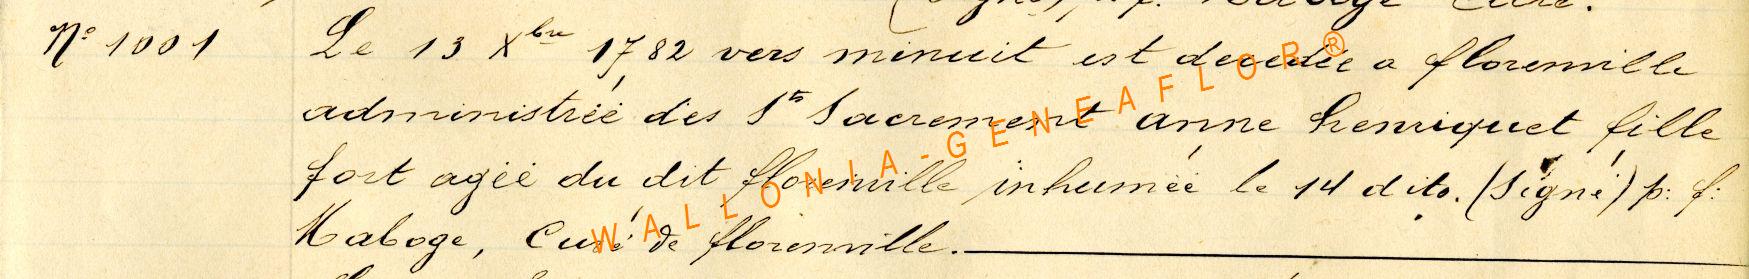 (Signé) p. f. Maboge Curé.
N° 1001 Le 13 Xbre 1782 vers minuit est decedée a florenville
administrée des Sts Sacrement anne henriquet fille
fort agée du dit florenville inhumée le 14 dito. (Signé) p: f:
Maboge, Curé de florenville.
WALLONIA-GENEAFLOR®